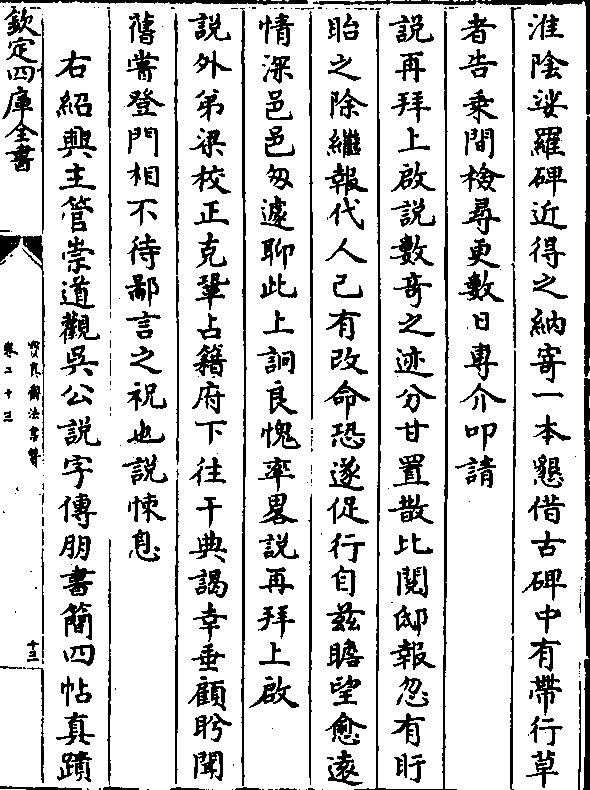 淮陰娑羅碑近得之納寄一本懇借古碑中有帶行草
者告乗間檢尋更數日專介叩請
說再拜上啟說數竒之迹分甘置散比閱邸報忽有盱
眙之除繼報代人已有改命恐遂促行自兹瞻望愈遠
情深邑邑匆遽聊此上詗良愧率畧說再拜上啟
說外弟梁校正克鞏占籍府下往干典謁幸垂顧盻聞
舊嘗登門相不待鄙言之祝也說悚息
右紹興主管崇道觀吳公說字傳朋書簡四帖真蹟
欽定四庫全書
寳真齋法書贊
卷二十三
十三